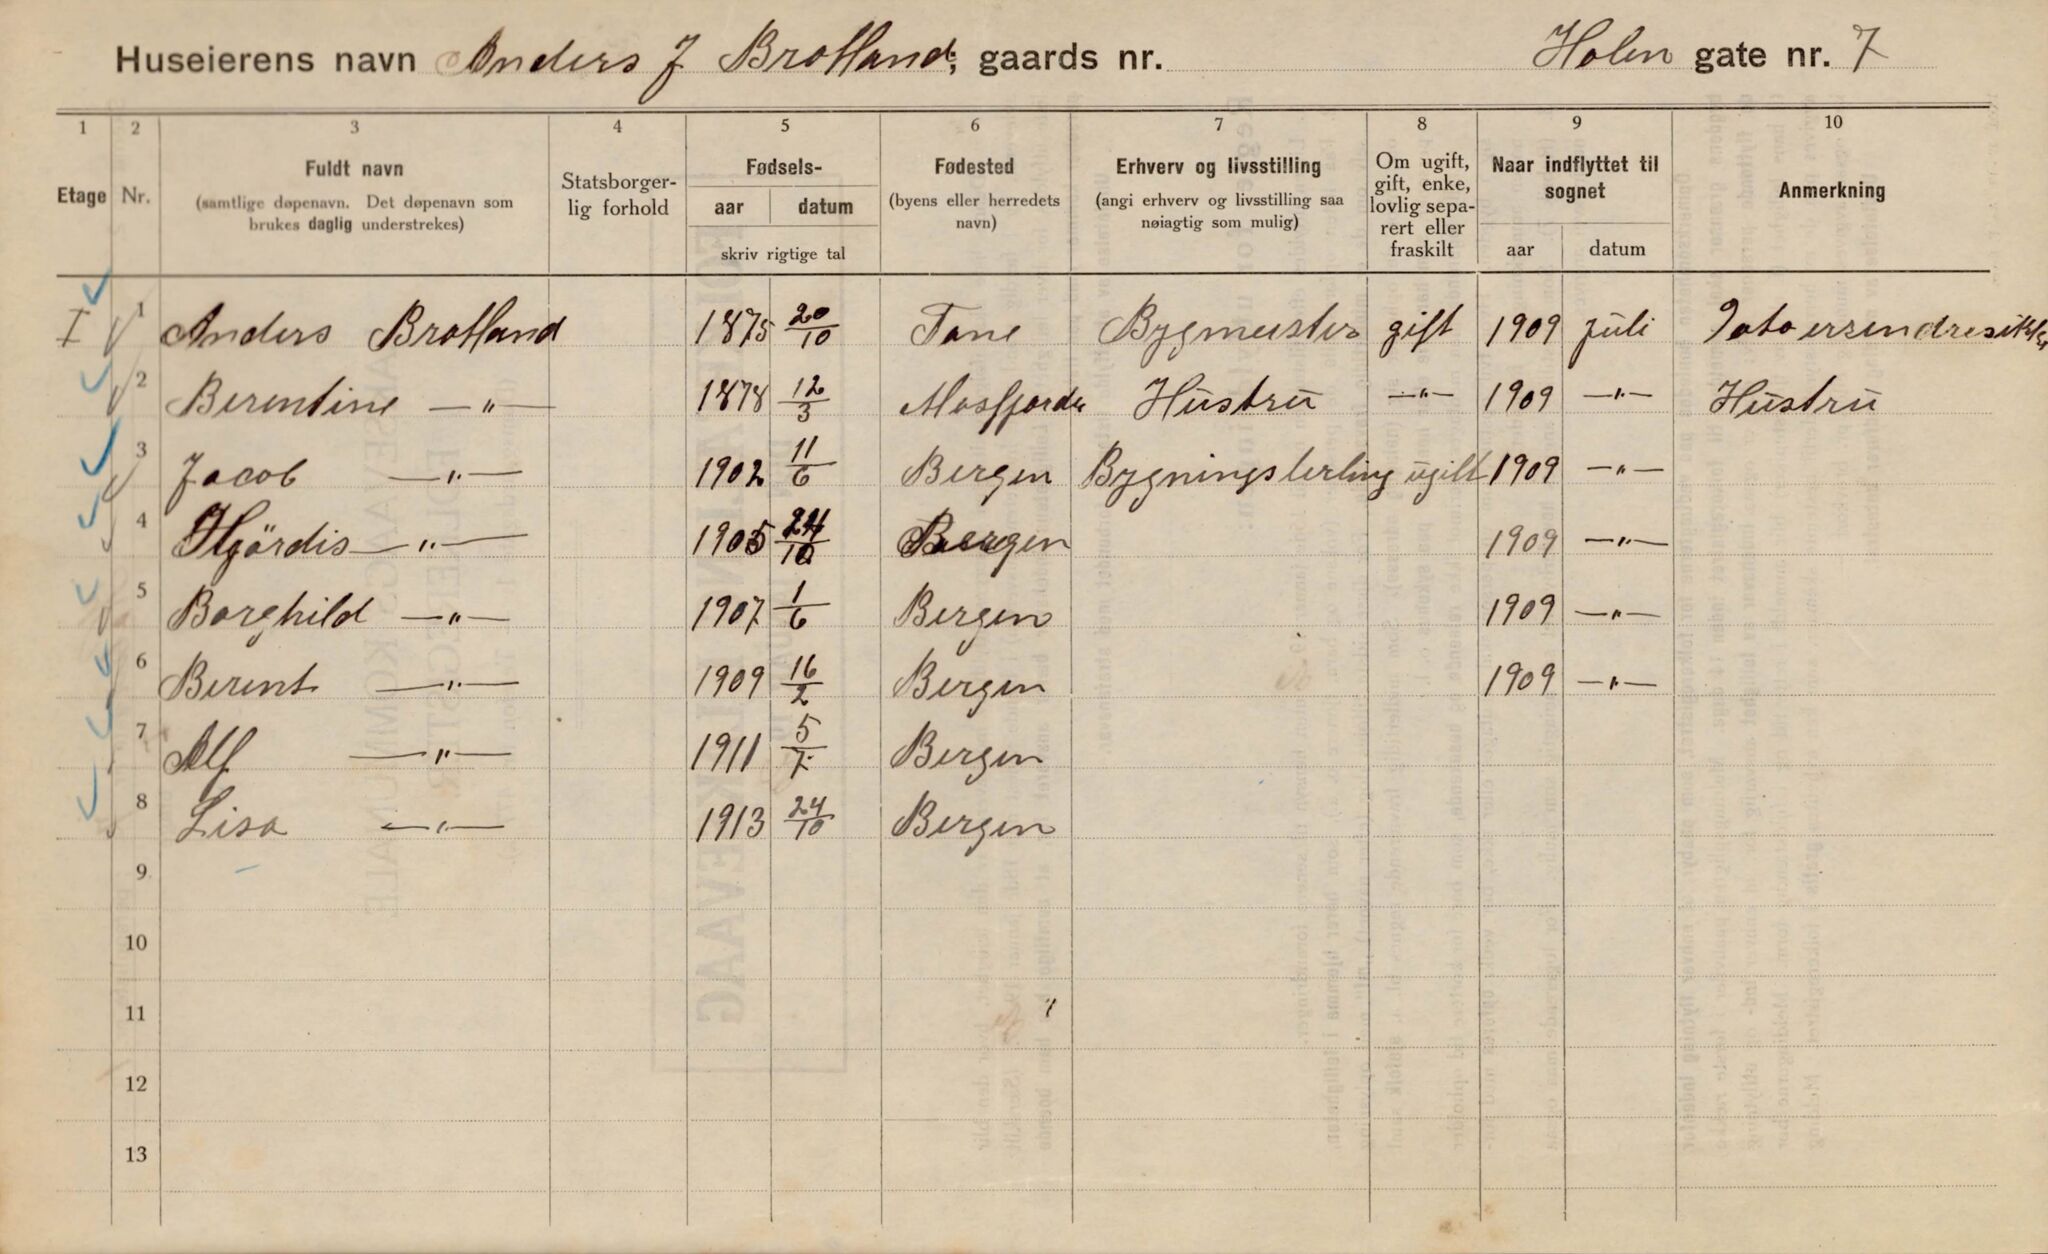 Huseierens navn Anders J Brotland; gaards nr. Holen gate nr. 7
1 2 3 4 5 6 7 8 9 10
Etage Nr. Fuldt navn (samtlige døpenavn. Det døpenavn som brukes daglig understrekes) Statsborger-lig forhold Fødsels- aar datum skriv rigtige tal Fødested (byens eller herredets navn) Erhverv og livsstilling (angi erhverv og livsstilling saa nøiagtig som mulig) Om ugift, gift, enke, lovlig sepa-rert eller fraskilt Naar indflyttet til sognet aar datum Anmerkning
I 1 Anders Brotland 1875 20/10 Fane Bygmester gift 1909 juli
2 Berentine —"— 1878 12/3 Masfjorden Hustru —"— 1909 —"— Hustru
3 Jacob —"— 1902 11/6 Bergen Bygningslerling ugift 1909 —"—
4 Hjördis —"— 1905 24/10 Bergen 1909 —"—
5 Borghild —"— 1907 1/6 Bergen 1909 —"—
6 Berent —"— 1909 16/2 Bergen 1909 —"—
7 Alf —"— 1911 5/7 Bergen
8 Lisa —"— 1913 24/10 Bergen
9
10
11
12
13